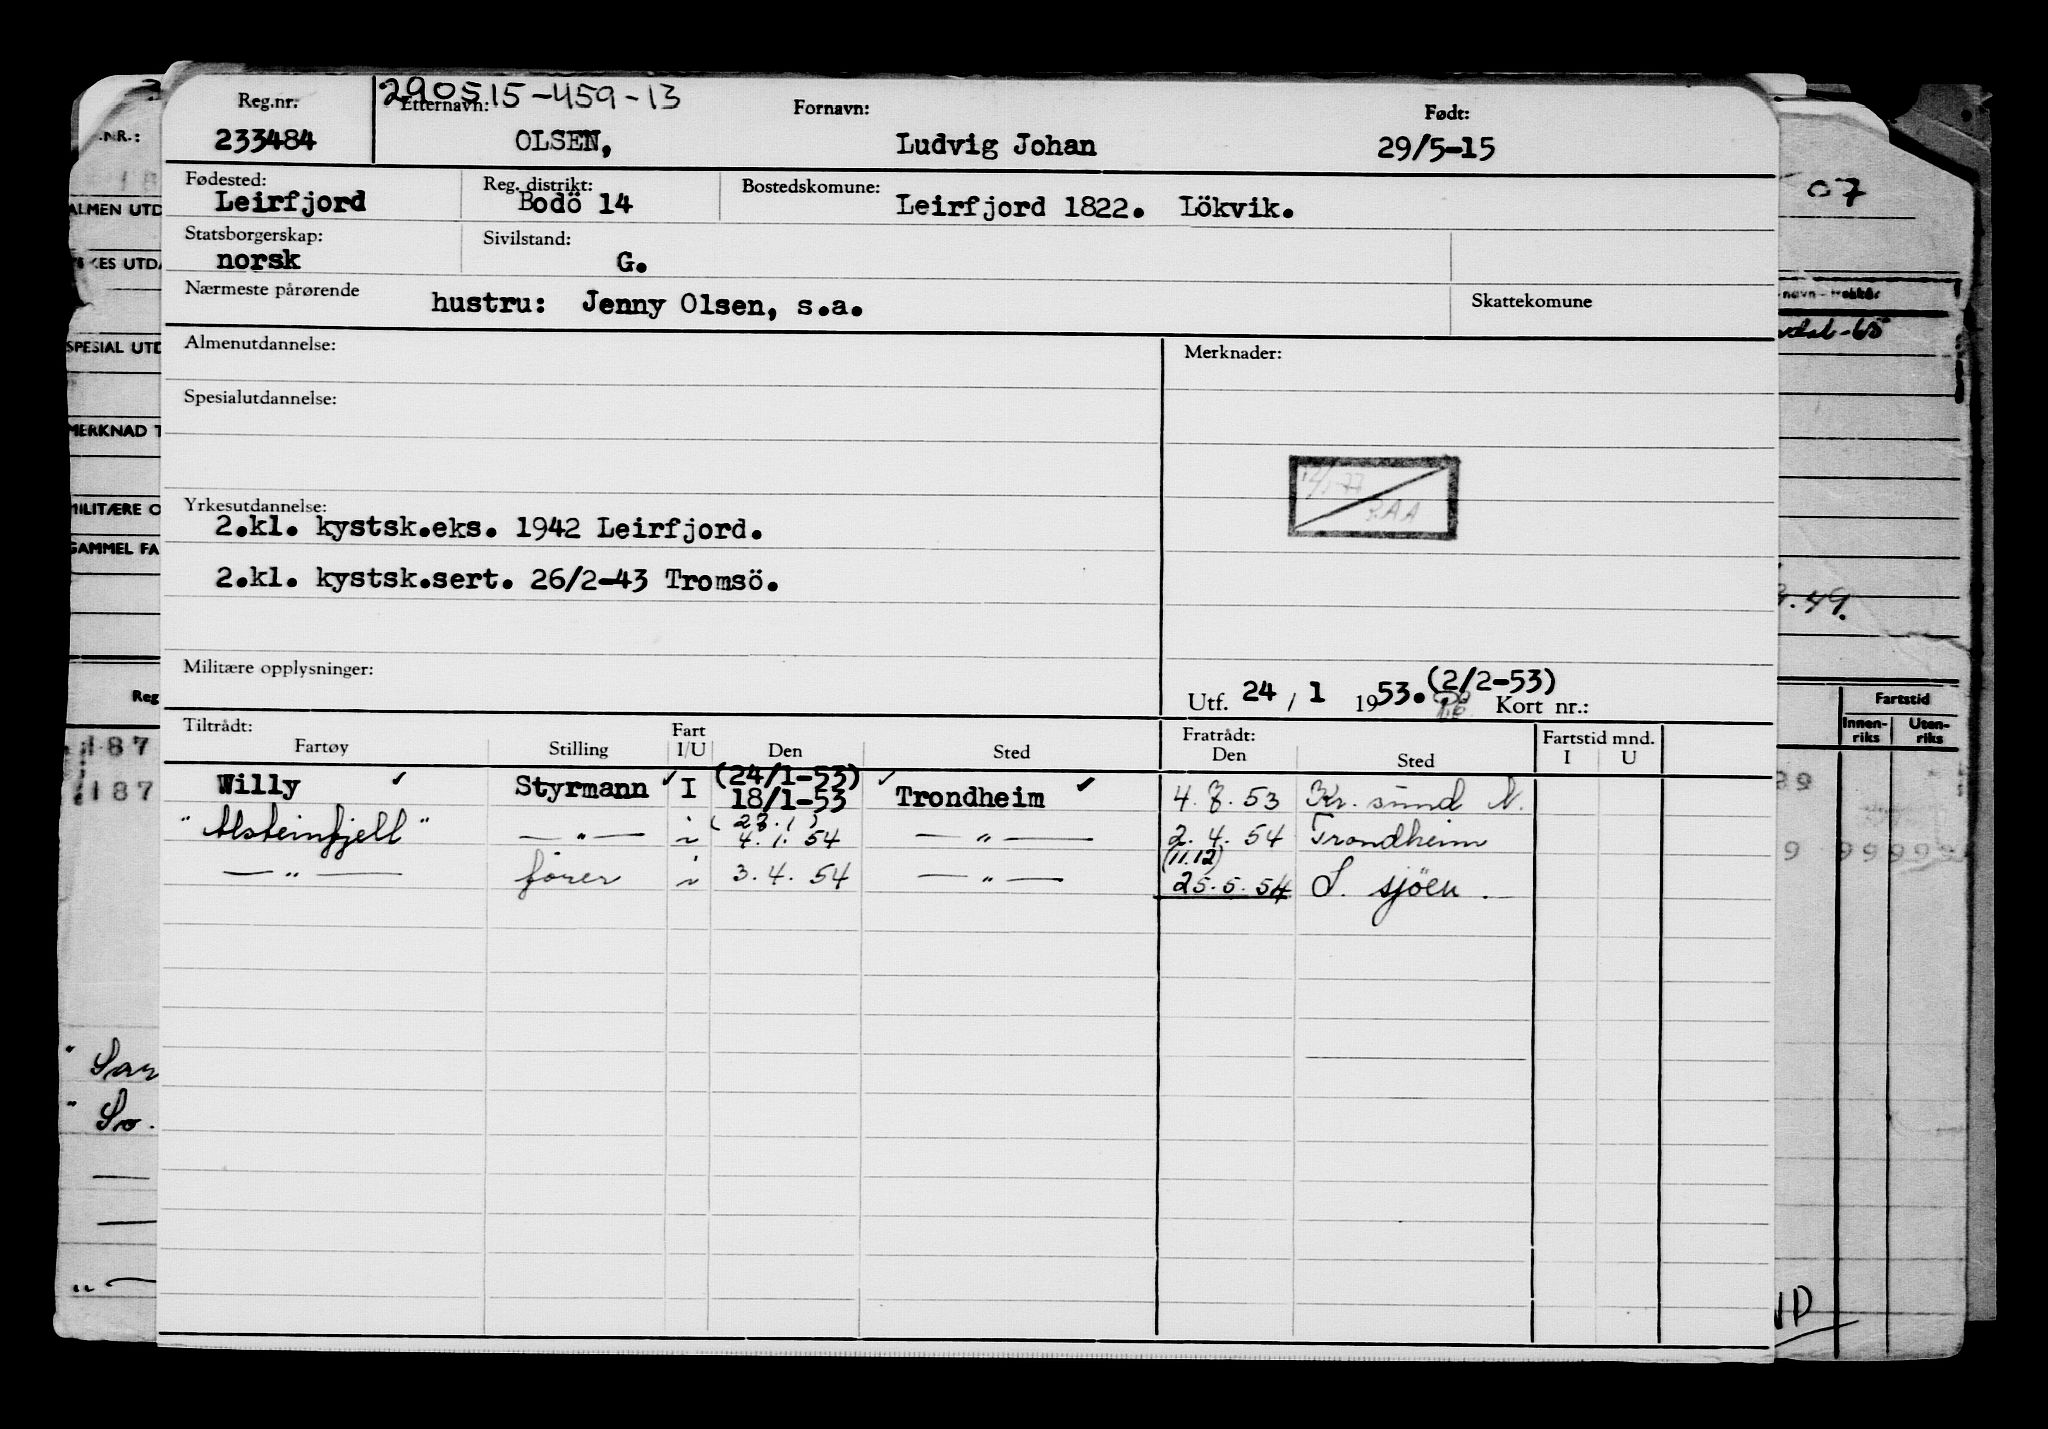 290515-459-13
Reg.nr. Etternavn: Fornavn: Født:
233484 OLSEN, Ludvig Johan 29/5-15
Fødested: Reg. distrikt: Bostedskomune:
Leirfjord Bodö 14 Leirfjord 1822. Lökvik.
Statsborgerskap: Sivilstand:
norsk G.
Nærmeste pårørende hustru: Jenny Olsen, s.a. Skattekomune
Almenutdannelse: Merknader:
Spesialutdannelse:
Yrkesutdannelse:
2.kl. kystsk.eks. 1942 Leirfjord.
2.kl. kystsk.sert. 26/2-43 Tromsö.
Militære opplysninger:
Utf. 24 / 1 1953. (2/2-53) Kort nr.:
Tiltrådt: Fart Fratrådt: Fartstid mnd.
Fartøy Stilling I/U Den Sted Den Sted I U
Willy ✓ Styrmann ✓ I (24/1-53) 18/1-53 ✓ Trondheim ✓ 4.8.53 Kr. sund N.
"Alsteinfjell" —"— i 4.1.54 —"— 2.4.54 Trondheim
—"— fører i 3.4.54 —"— (11.12) 25.5.54 S. sjöen.
.NR.:
ALMEN UTD
SPESIAL UTD
MERKNAD T
MILITÆRE O
GAMMEL FA
Reg
187
187
" San
" So.
07
-65
.49.
Fartstid
Innen-riks Uten-riks